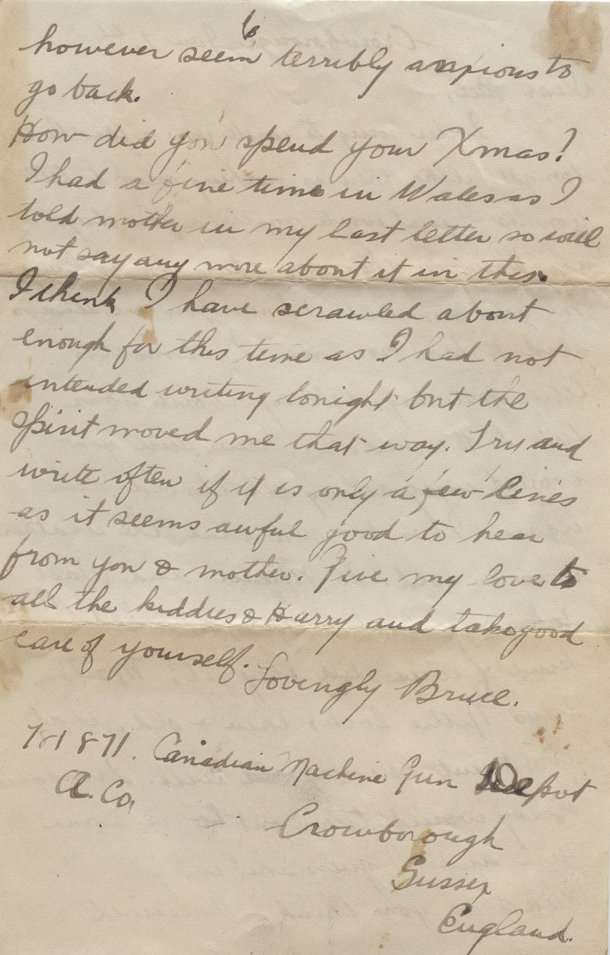 6
however seem terribly anxious to
go back.
How did you spend your Xmas?
I had a fine time in Wales as I
told mother in my last letter so will
not say any more about it in this.
I think I have scrawled about
enough for this time as I had not
intended writing tonight but the
spirit moved me that way. Try and
write often if it is only a few lines
as it seems awful good to hear
from you & mother. Give my love to
all the kiddies & Harry and take good
care of yourself.
Lovingly Bruce.
781871. Canadian Machine Gun Depot
A. Co.
Crowborough
Sussex
England.